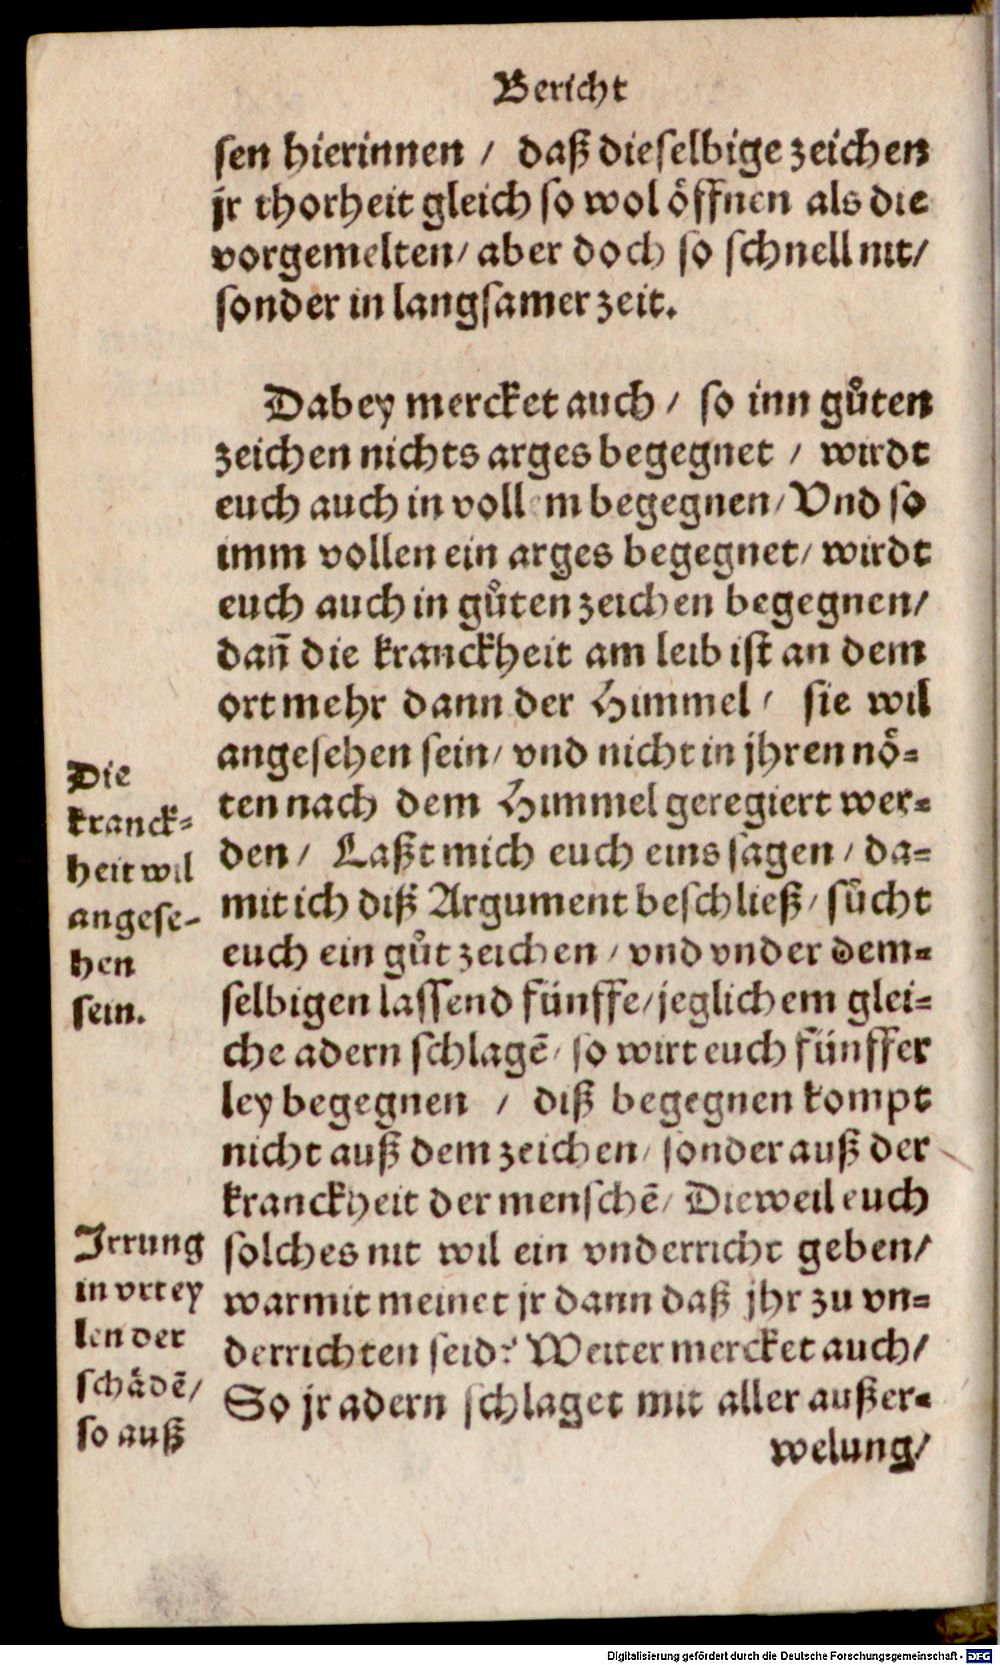 Bericht
sen hierinnen / daß dieselbige zeichen
jr thorheit gleich so wol öffnen als die
vorgemelten/ aber doch so schnell nit/
sonder in langsamer zeit.
Dabey mercket auch / so inn gůten
zeichen nichts arges begegnet / wirdt
euch auch in vollem begegnen/ Vnd so
imm vollen ein arges begegnet/ wirdt
euch auch in gůten zeichen begegnen/
dañ die kranckheit am leib ist an dem
ort mehr dann der Himmel / sie wil
angesehen sein/ vnd nicht in jhren nö-
ten nach dem Himmel geregiert wer-
den / Laßt mich euch eins sagen / da-
mit ich diß Argument beschließ/ sůcht
euch ein gůt zeichen / vnd vnder dem-
selbigen lassend fünffe/ jeglichem glei-
che adern schlagē/ so wirt euch fünffer
ley begegnen / diß begegnen kompt
nicht auß dem zeichen/ sonder auß der
kranckheit der menschē/ Dieweil euch
solches nit wil ein vnderricht geben/
warmit meinet jr dann daß jhr zu vn-
derrichten seid? Weiter mercket auch/
So jr adern schlaget mit aller außer-
welung/
Die
kranck-
heit wil
angese-
hen
sein.
Irrung
in vrtey
len der
schädē/
so auß
Digitalisierung gefördert durch die Deutsche Forschungsgemeinschaft - DFG